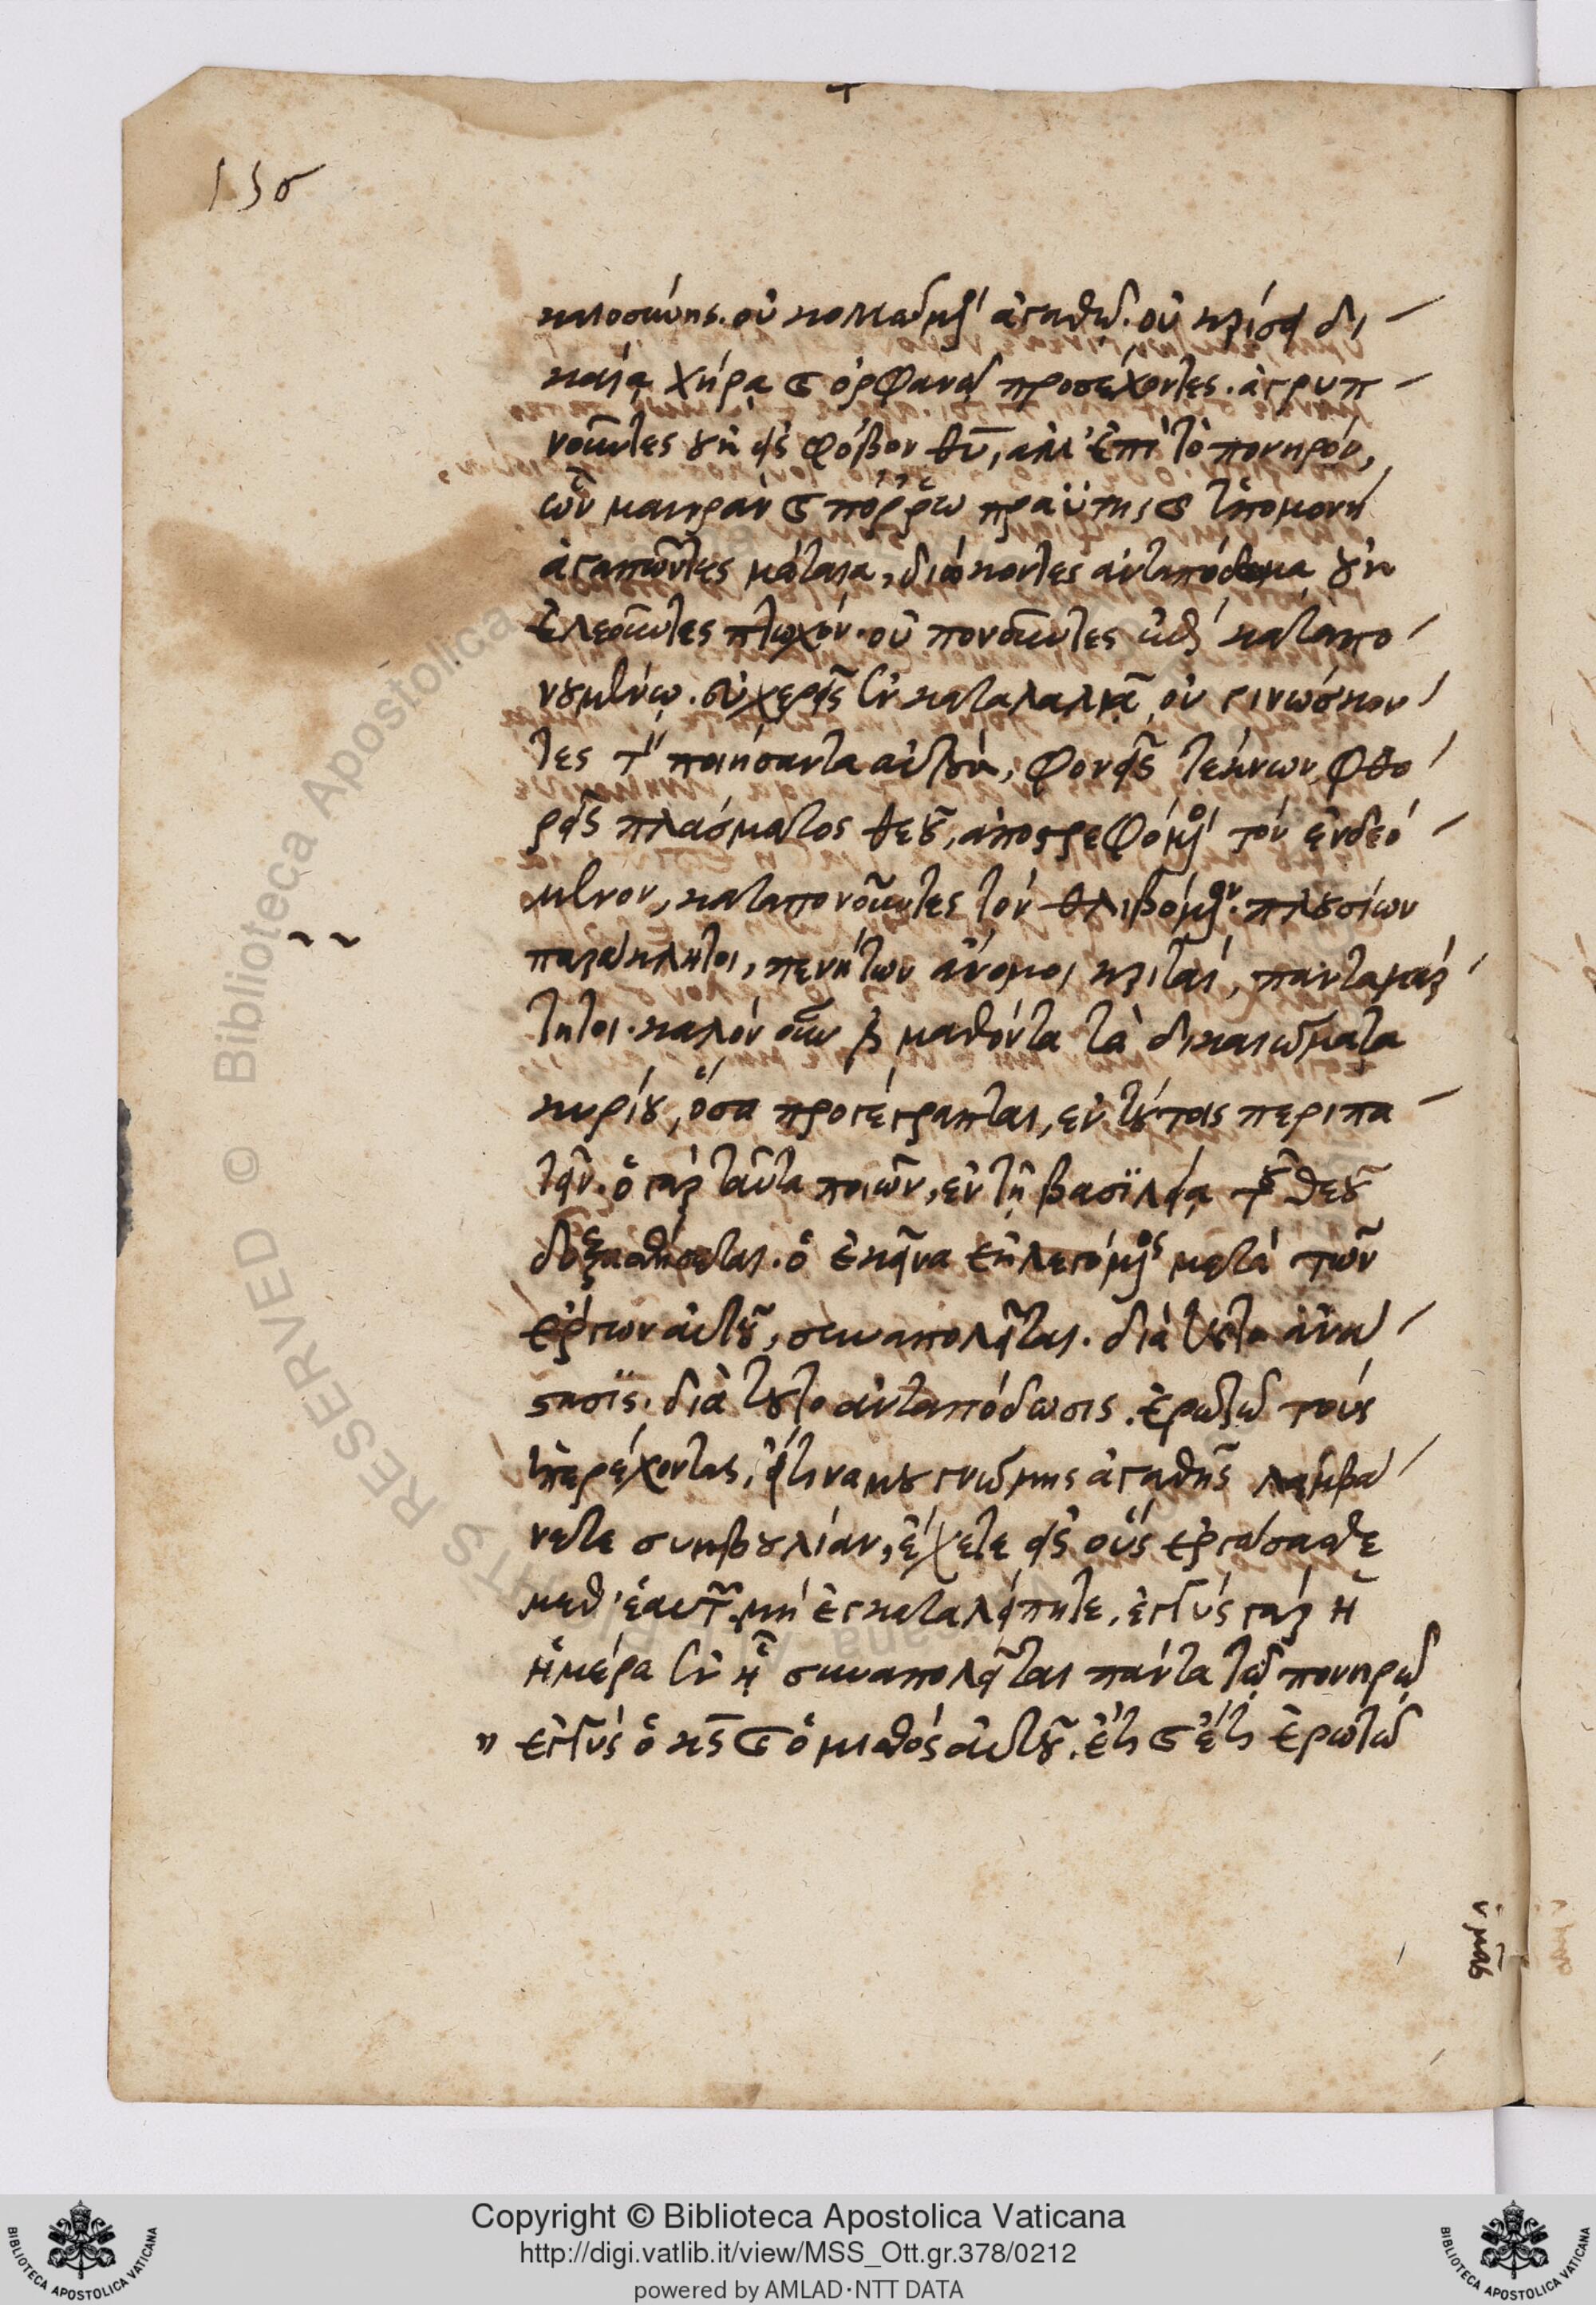 150
καιοσύνης. οὐ κολλώμενοι ἀγαθῷ. οὐ κρίσει δι
καίᾳ χήρᾳ καὶ ὀρφανῷ προσέχοντες. ἀγρυπ
νοῦντες οὐκ εἰς φόβον θῡ, ἀλλ' ἐπὶ τὸ πονηρόν,
ὧν μακρὰν καὶ πόρρω πραΰτης καὶ ὑπομονή
ἀγαπῶντες μάταια, διώκοντες ἀνταπόδομα οὐκ
ἐλεοῦντες πτωχόν. οὐ πονοῦντες ἐπὶ καταπο
νουμένῳ. εὐχερεῖς ἐν καταλαλιᾷ οὐ γινώσκον
τες τὸν ποιήσαντα αὐτούς, φονεῖς τέκνων, φθο
ρεῖς πλάσματος θεοῦ, ἀποστρεφόμενοι τὸν ἐνδεό
μενον, καταπονοῦντες τὸν θλιβόμενον. πλουσίων
παράκλητοι, πενήτων ἄνομοι κριταί, πανταμάρ
τητοι. καλὸν οὖν ἐστὶ μαθόντα τὰ δικαιώματα
κυρίου, ὅσα προγέγραπται, ἐν τούτοις περιπα
τεῖν. ὁ γὰρ ταῦτα ποιῶν, ἐν τῇ βασιλείᾳ τοῦ θεοῦ
δοξασθήσεται. ὁ ἐκεῖνα ἐκλεγόμενος μετὰ τῶν
ἔργων αὐτοῦ, συναπολεῖται. διὰ τοῦτο ἀνά
στασις. διὰ τοῦτο ἀνταπόδωσις. ἐρωτῶ τοὺς
ὑπερέχοντας, εἴ τινα μου γνώμης ἀγαθῆς λαμβά
νετε συμβουλίαν, ἔχετε εἰς οὓς ἐργάσασθε
μεθ' ἑαυτῶν. μὴ ἐγκαταλείπητε, ἐγγὺς γὰρ ἡ
ἡμέρα ἐν ᾗ συναπολεῖται πάντα τῷ πονηρῷ
" ἐγγὺς ὁ κς̄ καὶ ὁ μισθὸς αὐτοῦ. ἔτι καὶ ἔτι ἐρωτῶ
ὑμᾶς
Copyright © Biblioteca Apostolica Vaticana
http://digi.vatlib.it/view/MSS_Ott.gr.378/0212
powered by AMLAD·NTT DATA